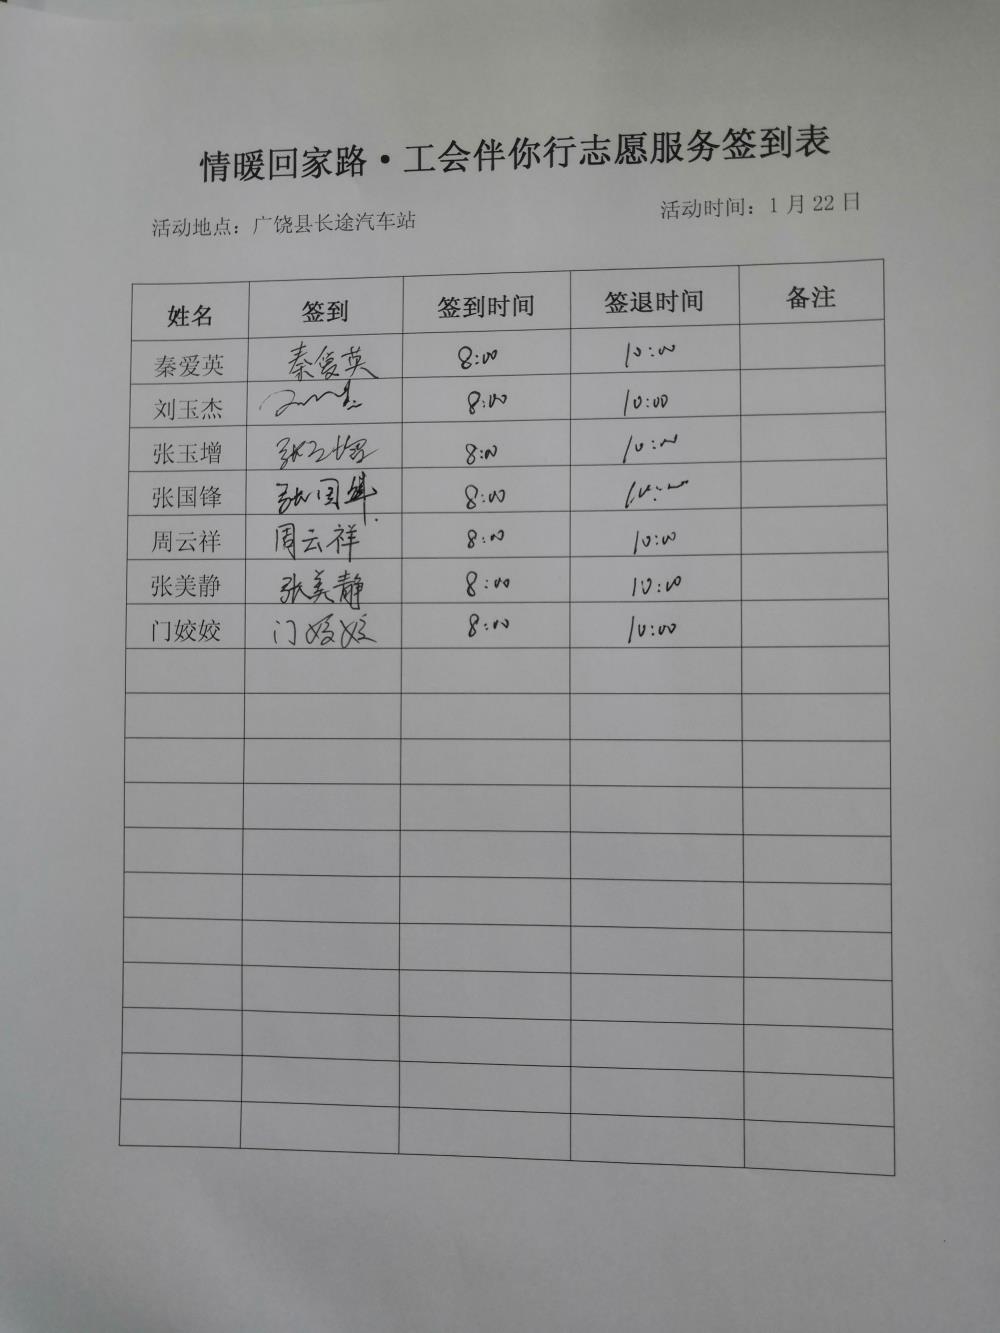 情暖回家路·工会伴你行志愿服务签到表
活动地点：广饶县长途汽车站 活动时间：1月22日
姓名 签到 签到时间 签退时间 备注
秦爱英 秦爱英 8:00 10:00
刘玉杰 8:00 10:00
张玉增 张玉增 8:00 10:00
张国锋 张国锋 8:00 10:00
周云祥 周云祥 8:00 10:00
张美静 张美静 8:00 10:00
门姣姣 门姣姣 8:00 10:00